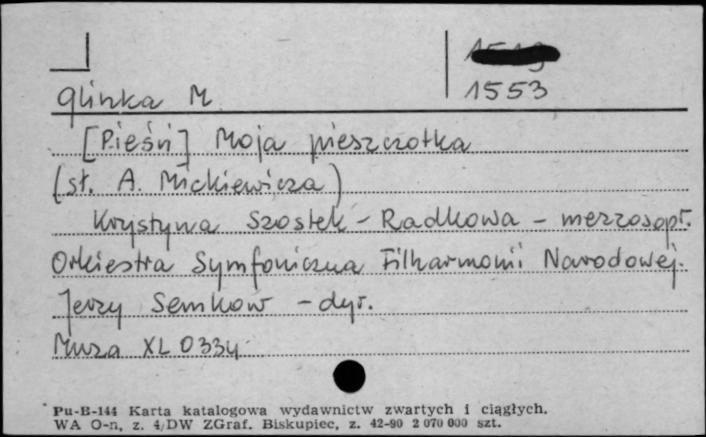 1553
Glinka M
[Pieśń] Moja pieszczotka
(sł. A. Mickiewicza)
Krystyna Szostek-Radkowa - mezzosopr.
Orkiestra Symfoniczna Filharmonii Narodowej.
Jerzy Semkow - dyr.
Muza XL 0334
Pu-B-144 Karta katalogowa wydawnictw zwartych i ciągłych.
WA O-n, z. 4/DW ZGraf. Biskupiec, z. 42-90 2 070 000 szt.